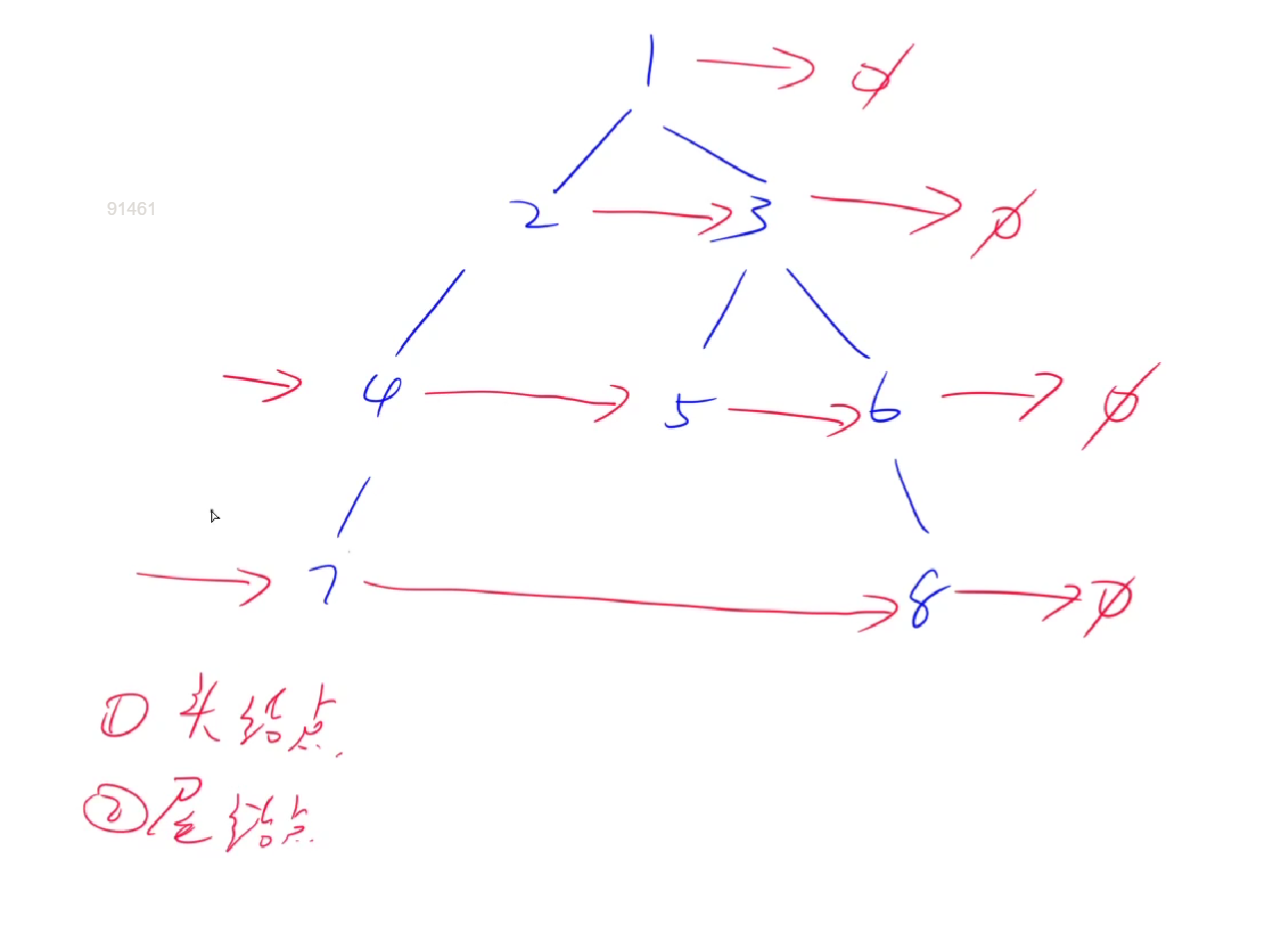 1 → ∅
91461
2 → 3 → ∅
→ 4 → 5 → 6 → ∅
→ 7 → 8 → ∅
① 头结点
② 尾结点